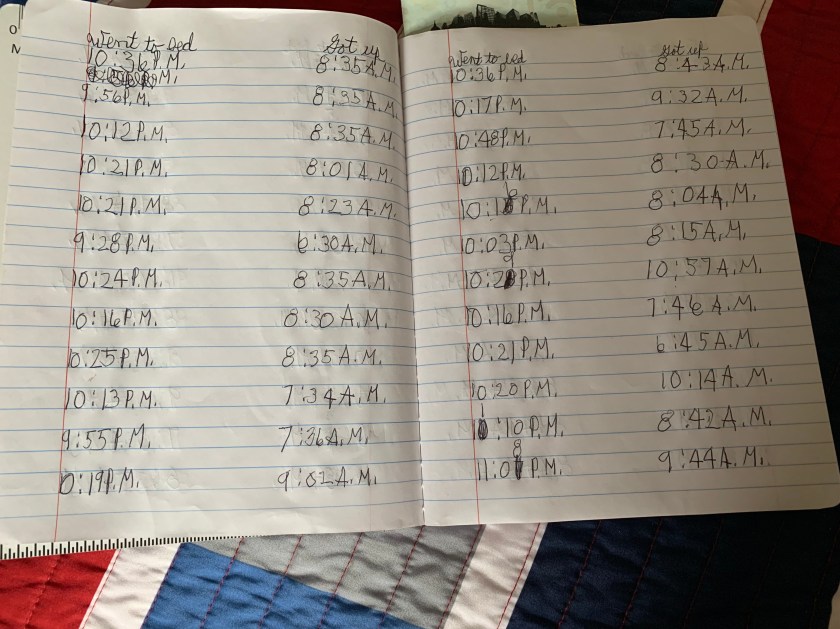 Went to bed Got up
10:36P.M. 8:35A.M.
9:56P.M. 8:35A.M.
10:12P.M. 8:35A.M.
10:21P.M. 8:01A.M.
10:21P.M. 8:23A.M.
9:28P.M. 6:30A.M.
10:24P.M. 8:35A.M.
10:16P.M. 8:30A.M.
10:25P.M. 8:35A.M.
10:13P.M. 7:34A.M.
9:55P.M. 7:36A.M.
10:19P.M. 9:01A.M.
Went to bed Got up
10:36P.M. 8:43A.M.
10:17P.M. 9:32A.M.
10:48P.M. 7:45A.M.
10:12P.M. 8:30A.M.
10:18P.M. 8:04A.M.
10:03P.M. 8:15A.M.
10:29P.M. 10:57A.M.
10:16P.M. 7:46A.M.
10:21P.M. 6:45A.M.
10:20P.M. 10:14A.M.
11:10P.M. 8:42A.M.
11:08P.M. 9:44A.M.